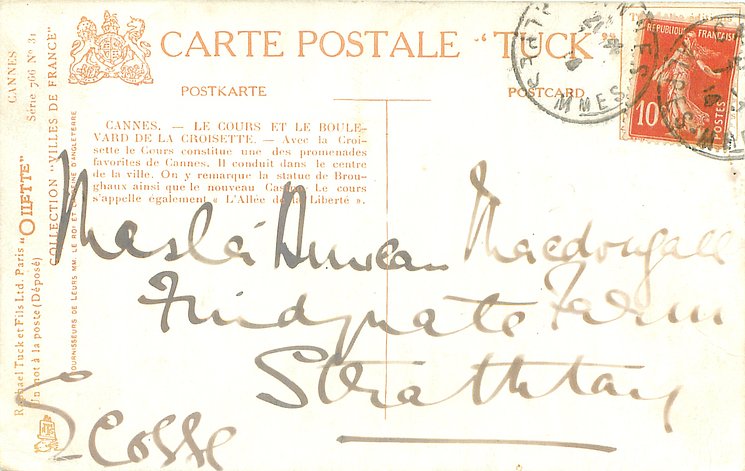 CARTE POSTALE "TUCK"
POSTKARTE
POSTCARD
CANNES. — LE COURS ET LE BOULE-
VARD DE LA CROISETTE. — Avec la Croi-
sette le Cours constitue une des promenades
favorites de Cannes. Il conduit dans le centre
de la ville. On y remarque la statue de Brou-
ghaux ainsi que le nouveau Le cours
s'appelle également « L'Allée de la Liberté ».
RÉPUBLIQUE FRANÇAISE
10
POSTES
CANNES
Série 766 No 31
COLLECTION "VILLES DE FRANCE"
FOURNISSEURS DE LEURS MM. LE ROI ET LA REINE D'ANGLETERRE
Raphael Tuck et Fils Ltd. Paris "OILETTE"
Un mot à la poste (Déposé)
Duncan Macdougall
Findynate Farm
Strathtay
Ecosse